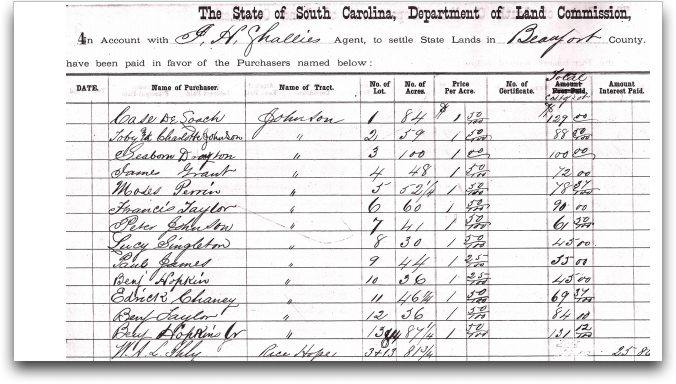 The State of South Carolina, Department of Land Commission,
In Account with J. H. Agent, to settle State Lands in Beaufort County.
have been paid in favor of the Purchasers named below:
DATE. Name of Purchaser. Name of Tract. No. of Lot. No. of Acres. Price Per Acre. No. of Certificate. Total Amount Amount Interest Paid.
Case De Johnson 1 84 $ 1 50/100 129 00
Toby & Charlotte Johnson " 2 59 1 50/100 88 50/100
Seaborn Drayton " 3 100 1 00 100 00
James Grant " 4 48 1 50/100 72 00
Moses Perrin " 5 52 1/4 1 50/100 78 37/100
Francis Taylor " 6 60 1 50/100 90 00
Peter Johnson " 7 41 1 50/100 61 50/100
Lucy Singleton " 8 30 1 50/100 45 00
Paul James " 9 44 1 25/100 55 00
Benj Hopkin " 10 36 1 25/100 45 00
Edrick Chaney " 11 46 1/4 1 50/100 69 37/100
Benj Taylor " 12 56 1 50/100 84 10
Benj Hopkins Jr " 13 87 1/4 1 50/100 131 12/100
W. A. L. Rice Hope 3+13 81 3/4 25 80